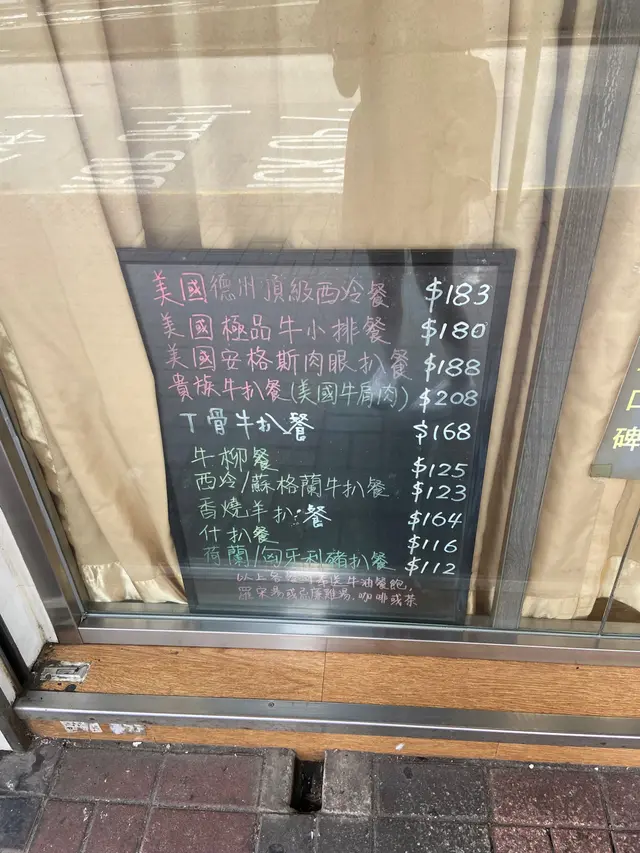 美國德州頂級西冷餐 $183
美國極品牛小排餐 $180
美國安格斯肉眼扒餐 $188
貴族牛扒餐(美國牛肩肉) $208
T骨牛扒餐 $168
牛柳餐 $125
西冷/蘇格蘭牛扒餐 $123
香燒羊扒餐 $164
什扒餐 $116
荷蘭/匈牙利豬扒餐 $112
以上各 牛油餐飽,
羅宋湯或 雞湯.咖啡或茶
口
碑